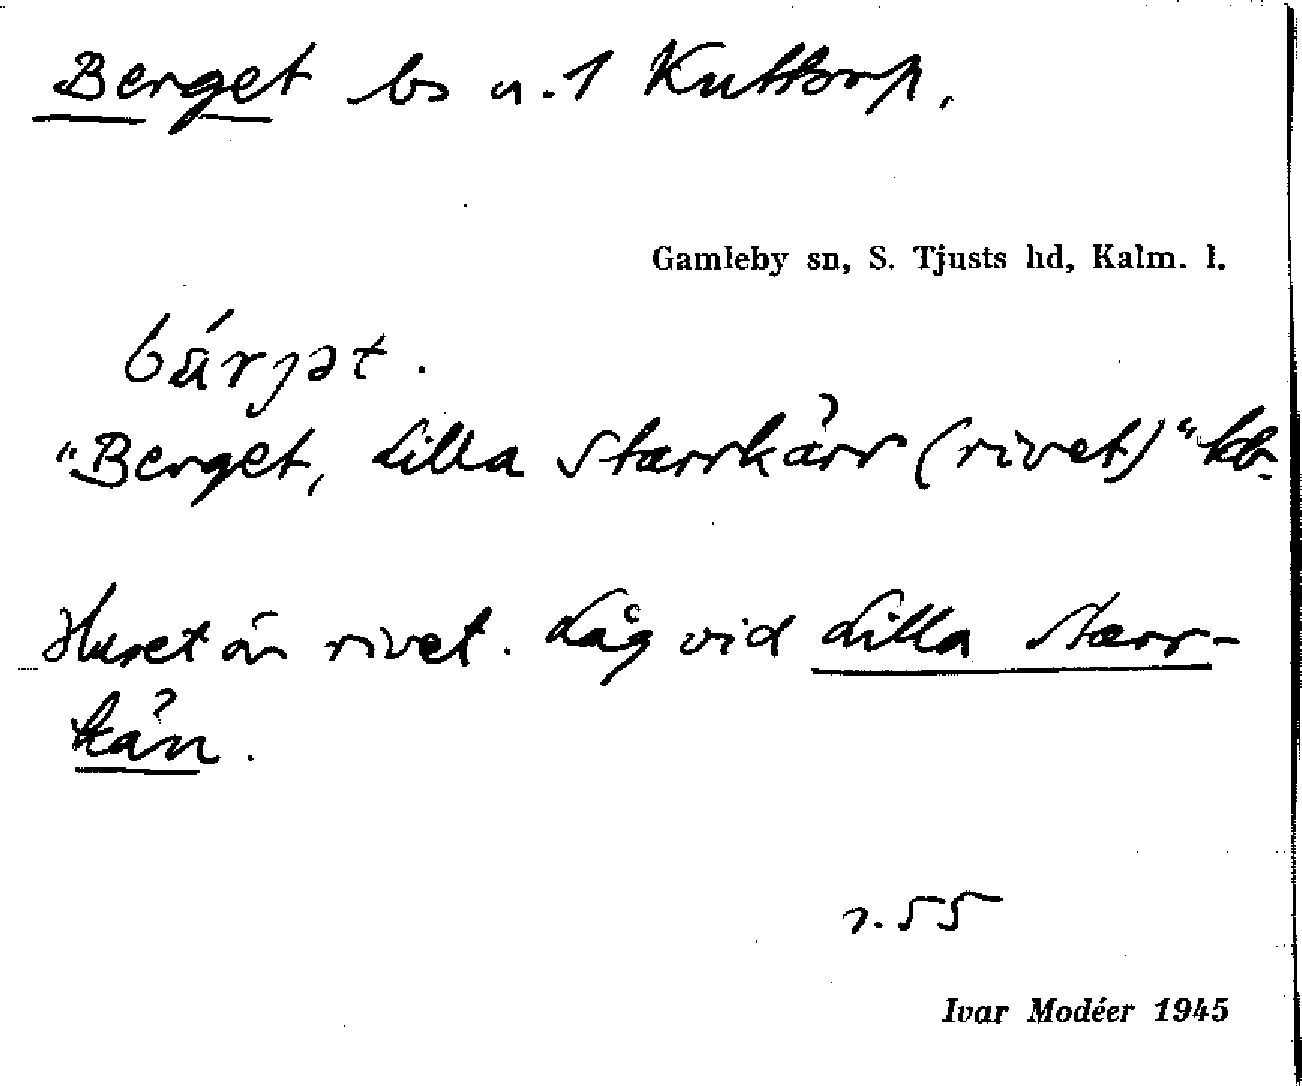 Berget bs u. 1 Kuttorp.
Gamleby sn, S. Tjusts hd, Kalm. l.
bä́rjət.
"Berget, Lilla Starrkärr (rivet)" kb.
Huset är rivet. Låg vid Lilla Starr-
kärr.
r. 55
Ivar Modéer 1945